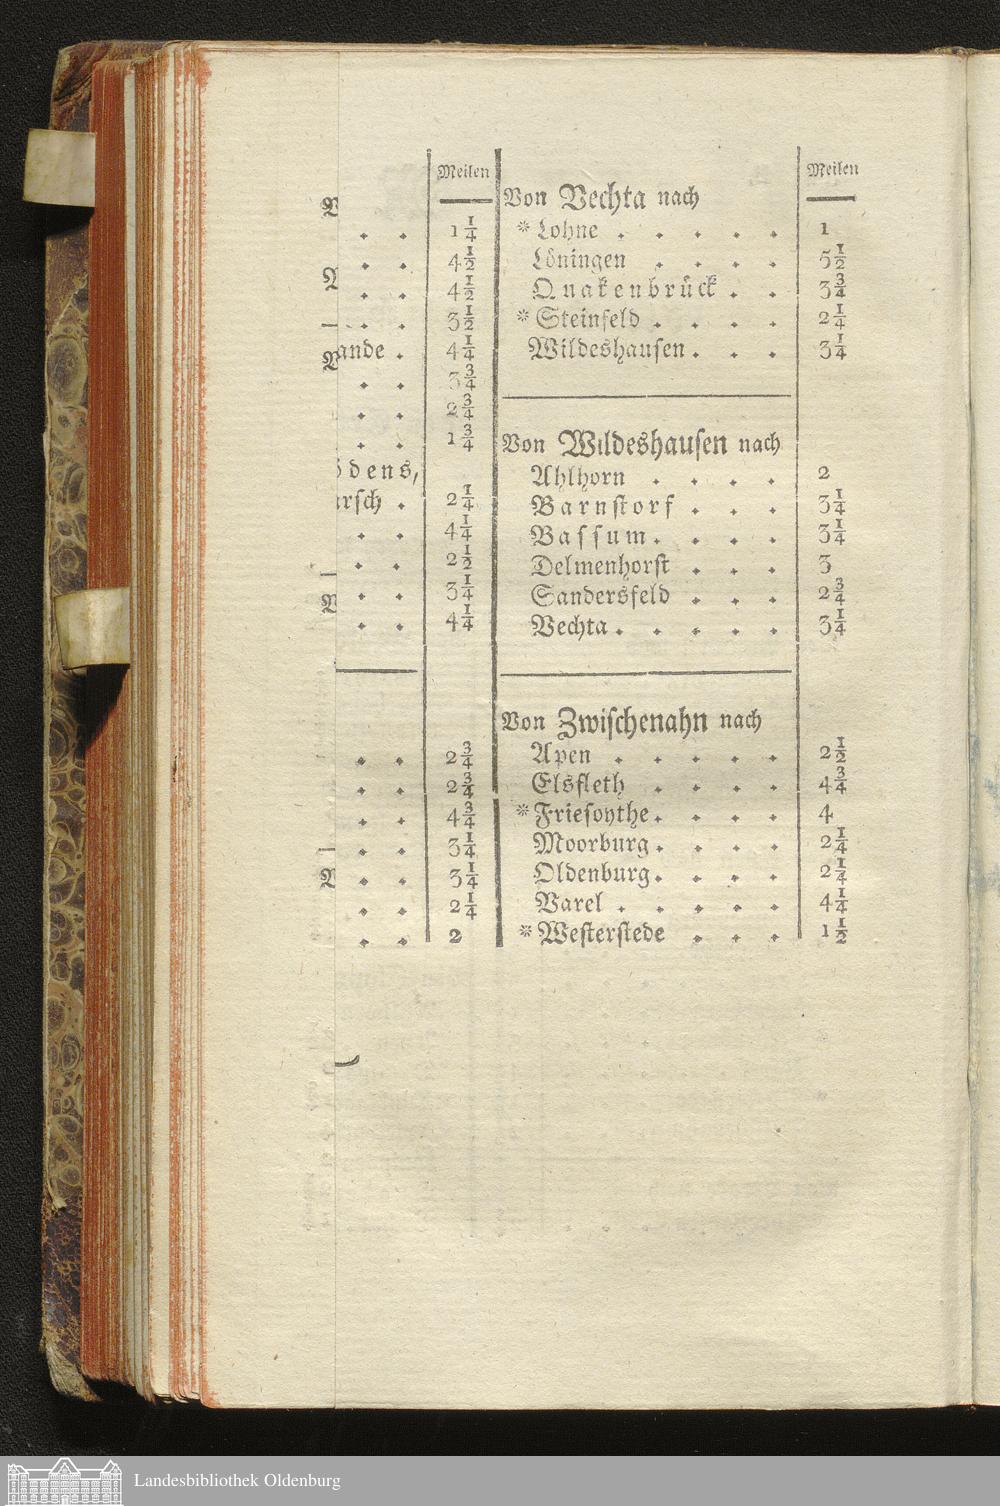 Meilen
1 1/4
4 1/2
4 1/2
3 1/2
ande . 4 1/4
3 3/4
2 3/4
1 3/4
ödens,
arsch . 2 1/4
4 1/4
2 1/2
3 1/4
4 1/4
2 3/4
2 3/4
4 3/4
3 1/4
3 1/4
2 1/4
2
Meilen
Von Vechta nach
* Lohne . . . . . 1
Löningen . . . . 5 1/2
Quakenbrück . . 3 3/4
* Steinfeld . . . . 2 1/4
Wildeshausen . . . 3 1/4
Von Wildeshausen nach
Ahlhorn . . . . 2
Barnstorf . . . 3 1/4
Bassum . . . . 3 1/4
Delmenhorst . . . 3
Sandersfeld . . . 2 3/4
Vechta . . . . . 3 1/4
Von Zwischenahn nach
Apen . . . . . 2 1/2
Elsfleth . . . . 4 3/4
* Friesoythe . . . . 4
Moorburg . . . . 2 1/4
Oldenburg . . . . 2 1/4
Varel . . . . . 4 1/4
* Westerstede . . . 1 1/2
Landesbibliothek Oldenburg